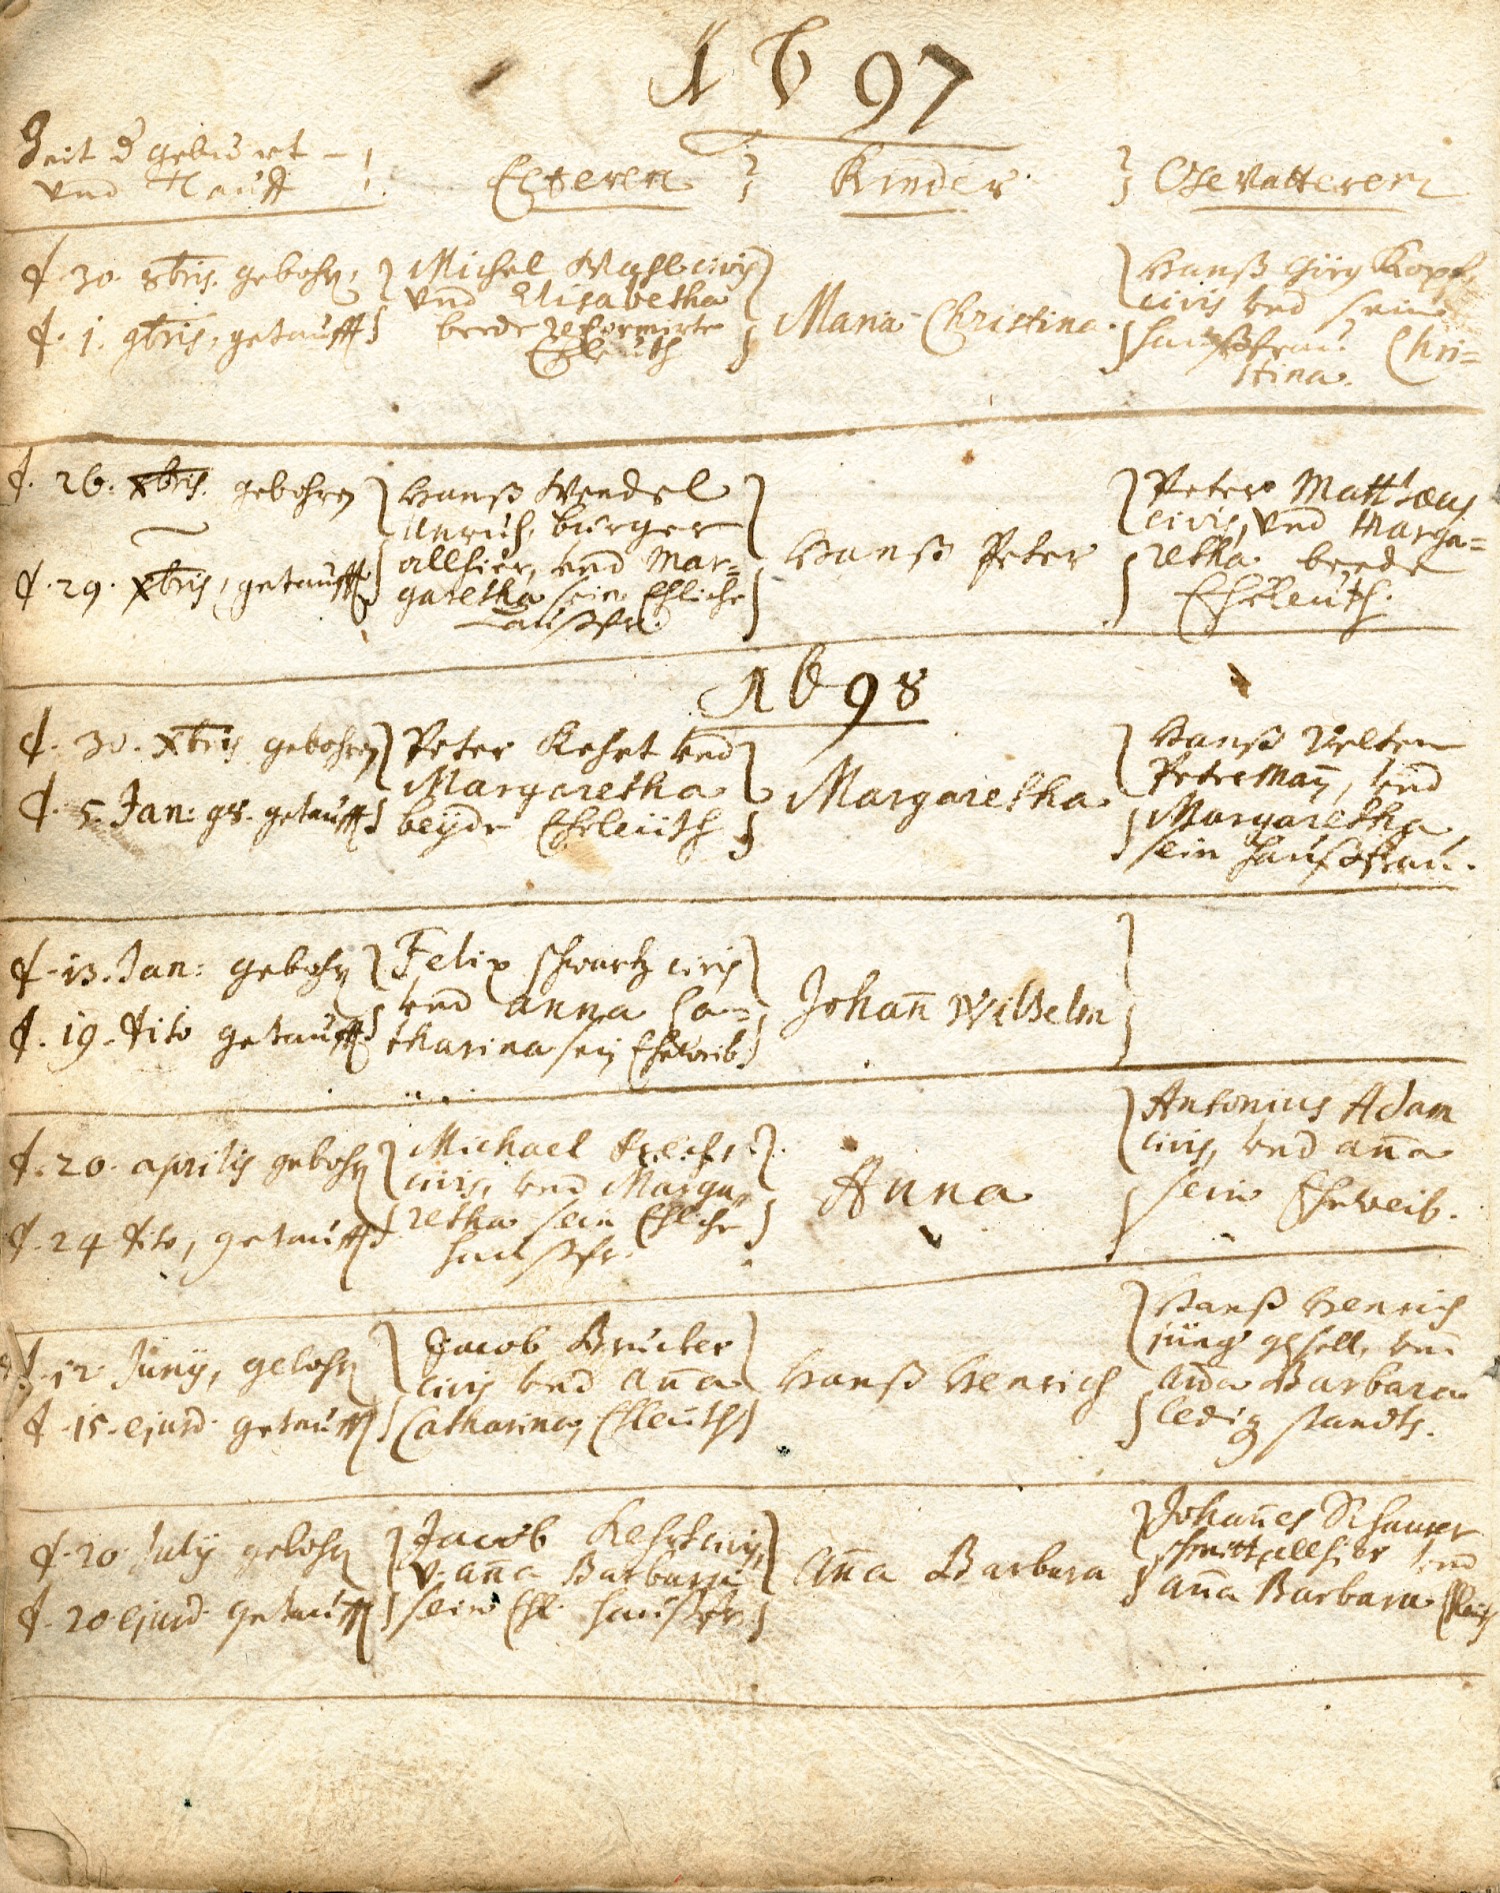 1697
Zeit d. geburt
und Tauff
Elteren
Kinder
Gevatteren
d. 30. 8bris. gebohrn,
d. 1. 9bris, getaufft
Michel civis
und Elisabetha
beede reformirte
Ehleuth
Maria Christina
Hanß Görg Kopf
civis und seine
haußfrau Chri=
stina.
d. 26. xbris. gebohren
d. 29. xbris, getaufft
Hanß Wendel
Unrich, burger
allhier, und Mar=
garetha sein Ehliche
Haußfr.
Hanß Peter
Peter Matthaeus
civis, und Marga=
retha beede
Ehleuth.
1698
d. 30. xbris gebohren
d. 5. Jan: 98. getaufft
Peter Kehrt und
Margaretha
beÿde Ehleüth
Margaretha
Hanß Velten
Petreman̄, und
Margaretha
sein haußfrau.
d. 13. Jan: gebohrn
d. 19. dito getaufft
Felix Schwartz civis
und anna Ca=
tharina sein Eheweib
Johan̄ Wilhelm
d. 20. aprilis gebohrn
d. 24 dito, getaufft
Michael
civis, und Marga=
retha sein Ehliche
haußfr.
Anna
Antonius Adam
civis, und an̄a
sein Eheweib.
d. 12. Junÿ, gebohrn
d. 15. ejusd. getaufft
Jacob Brucker
civis und an̄a
Catharina, Ehleuth
Hanß Henrich
Hanß Henrich
jung gesell, und
an̄a Barbara
ledig standts.
d. 20 Julÿ gebohrn
d. 20 ejusd. getaufft
Jacob Kehrt civis,
v. an̄a Barbara
sein Ehl. haußfr.
an̄a Barbara
Johan̄es Schaurer
schmitt allhier und
an̄a Barbara Ehleuth